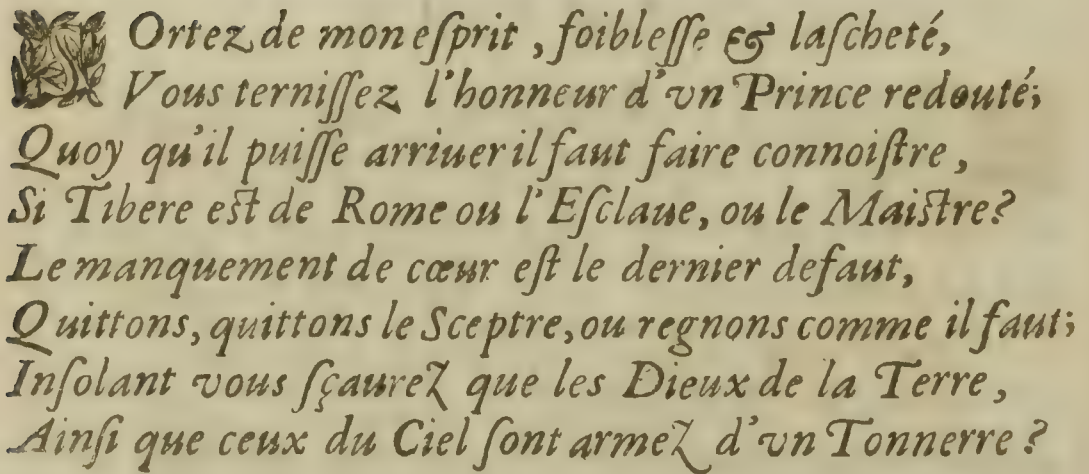 SOrtez de mon eſprit, foibleſſe & laſcheté,
Vous terniſſez l'honneur d'vn Prince redouté;
Quoy qu'il puiſſe arriuer il faut faire connoiſtre,
Si Tibere eſt de Rome ou l'Eſclaue, ou le Maiſtre?
Le manquement de cœur eſt le dernier defaut,
Quittons, quittons le Sceptre, ou regnons comme il faut;
Inſolant vous ſçaurez que les Dieux de la Terre,
Ainſi que ceux du Ciel ſont armez d'vn Tonnerre?